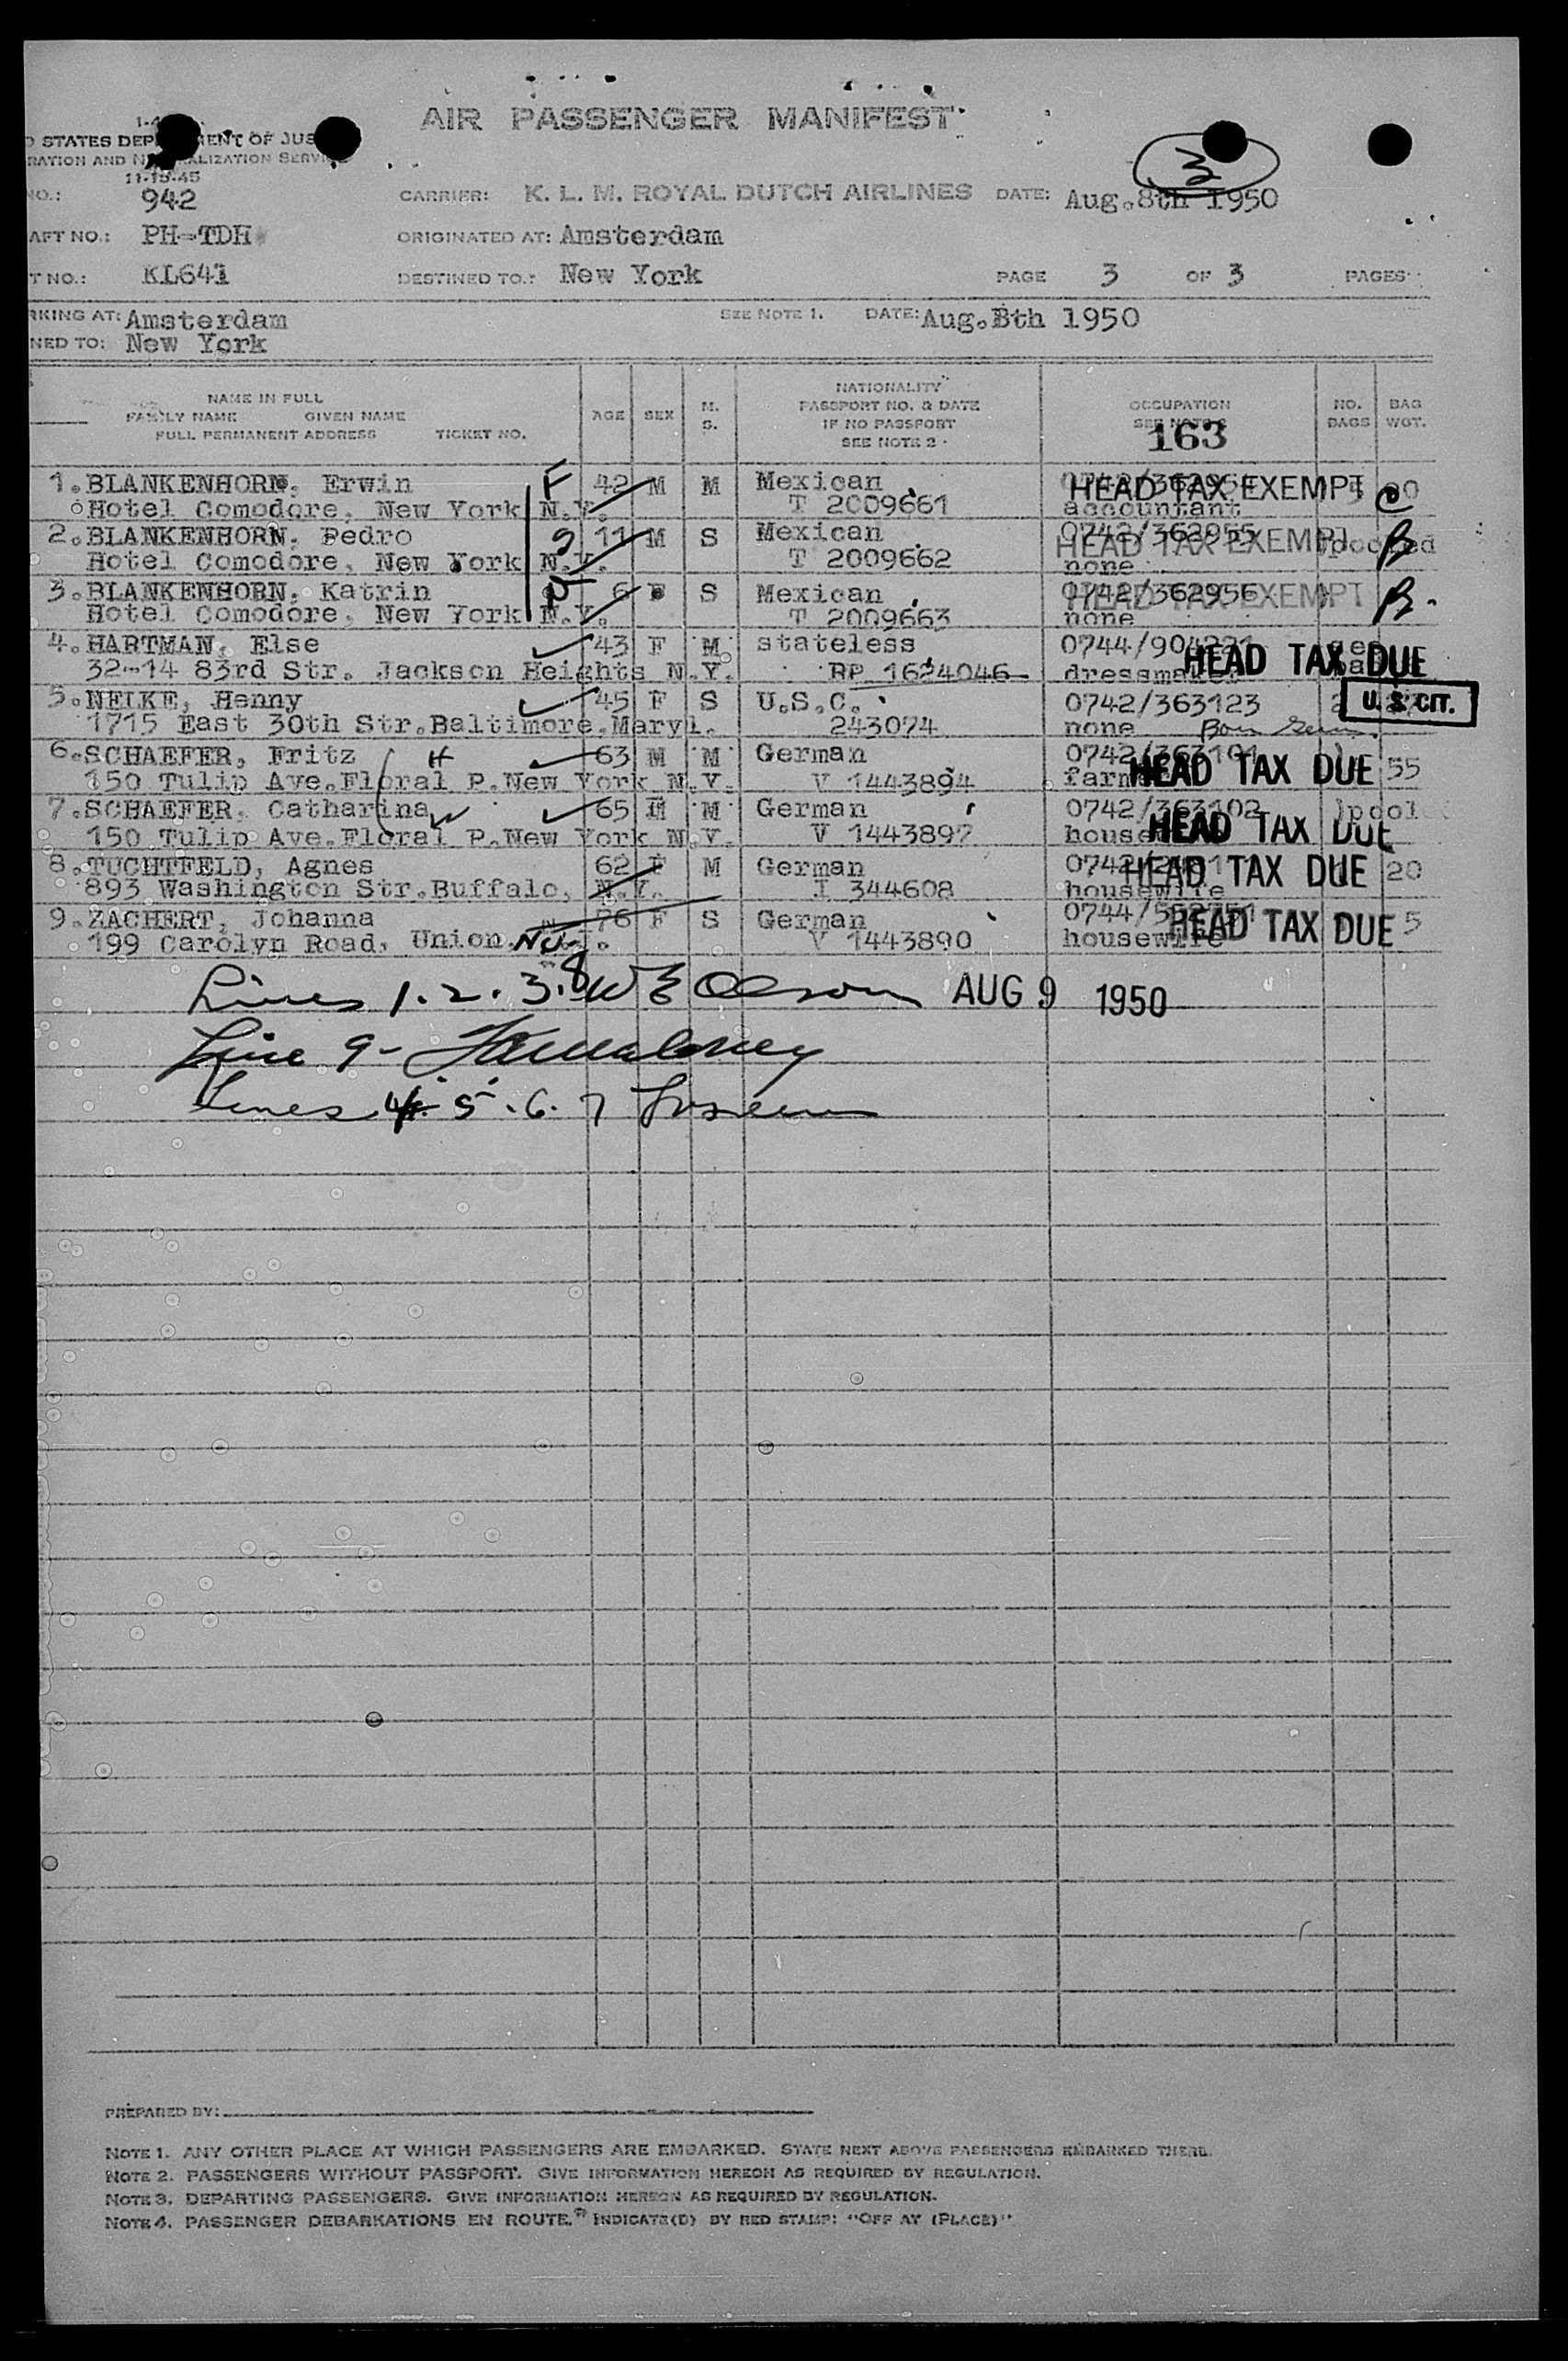 AIR PASSENGER MANIFEST
STATES DEP ENT OF JUS
RATION AND N ALIZATION SERVI
11-15-45
NO.: 942 CARRIER: K. L. M. ROYAL DUTCH AIRLINES DATE: Aug.8th 1950
AFT NO.: PH-TDH ORIGINATED AT: Amsterdam
T NO.: KL641 DESTINED TO.: New York PAGE 3 OF 3 PAGES
RKING AT: Amsterdam SEE NOTE 1. DATE: Aug.8th 1950
NED TO: New York
NAME IN FULL
FAMILY NAME GIVEN NAME
FULL PERMANENT ADDRESS TICKET NO.
AGE SEX M. S.
NATIONALITY
PASSPORT NO. & DATE
IF NO PASSPORT
SEE NOTE 2
OCCUPATION
SEE NOTE
163
NO. BAGS
BAG WGT.
1.BLANKENHORN. Erwin F 42 M M Mexican 0742/362954 HEAD TAX EXEMPT
Hotel Comodore, New York N.Y. T 2009661 accountant
2.BLANKENHORN. Pedro S 11 M S Mexican 0742/362955 HEAD TAX EXEMPT B
Hotel Comodore, New York N.Y. T 2009662 none
3.BLANKENHORN. Katrin 6 F S Mexican 0742/362956 HEAD TAX EXEMPT B.
Hotel Comodore, New York N.Y. T 2009663 none
4.HARTMAN. Else 43 F M stateless 0744/904221 HEAD TAX DUE
32-14 83rd Str. Jackson Heights N.Y. RP 1624046 dressmaker
5.NELKE, Henny 45 F S U.S.C. 0742/363123 2 U.S. CIT.
1715 East 30th Str.Baltimore.Maryl. 243074 none Born
6.SCHAEFER, Fritz H 63 M M German 0742/363101 HEAD TAX DUE 55
150 Tulip Ave.Floral P.New York N.Y. V 1443894 farm
7.SCHAEFER. Catharina W 65 M German 0742/363102 )pool HEAD TAX DUE
150 Tulip Ave.Floral P.New York N.Y. V 1443897 house
8.TUCHTFELD, Agnes 62 F M German 0742/ HEAD TAX DUE 20
893 Washington Str.Buffalo, N.Y. I 344608 housewife
9.ZACHERT, Johanna 76 F S German 0744/ HEAD TAX DUE 5
199 Carolyn Road, Union. N.J. V 1443890 housewife
Lines 1. 2. 3. 8 W E Olson AUG 9 1950
Line 9- Maloney
Lines 4. 5. 6. 7
PREPARED BY:
NOTE 1. ANY OTHER PLACE AT WHICH PASSENGERS ARE EMBARKED. STATE NEXT ABOVE PASSENGERS EMBARKED THERE.
NOTE 2. PASSENGERS WITHOUT PASSPORT. GIVE INFORMATION HEREON AS REQUIRED BY REGULATION.
NOTE 3. DEPARTING PASSENGERS. GIVE INFORMATION HEREON AS REQUIRED BY REGULATION.
NOTE 4. PASSENGER DEBARKATIONS EN ROUTE. INDICATE(D) BY RED STAMP: "OFF AT (PLACE)"